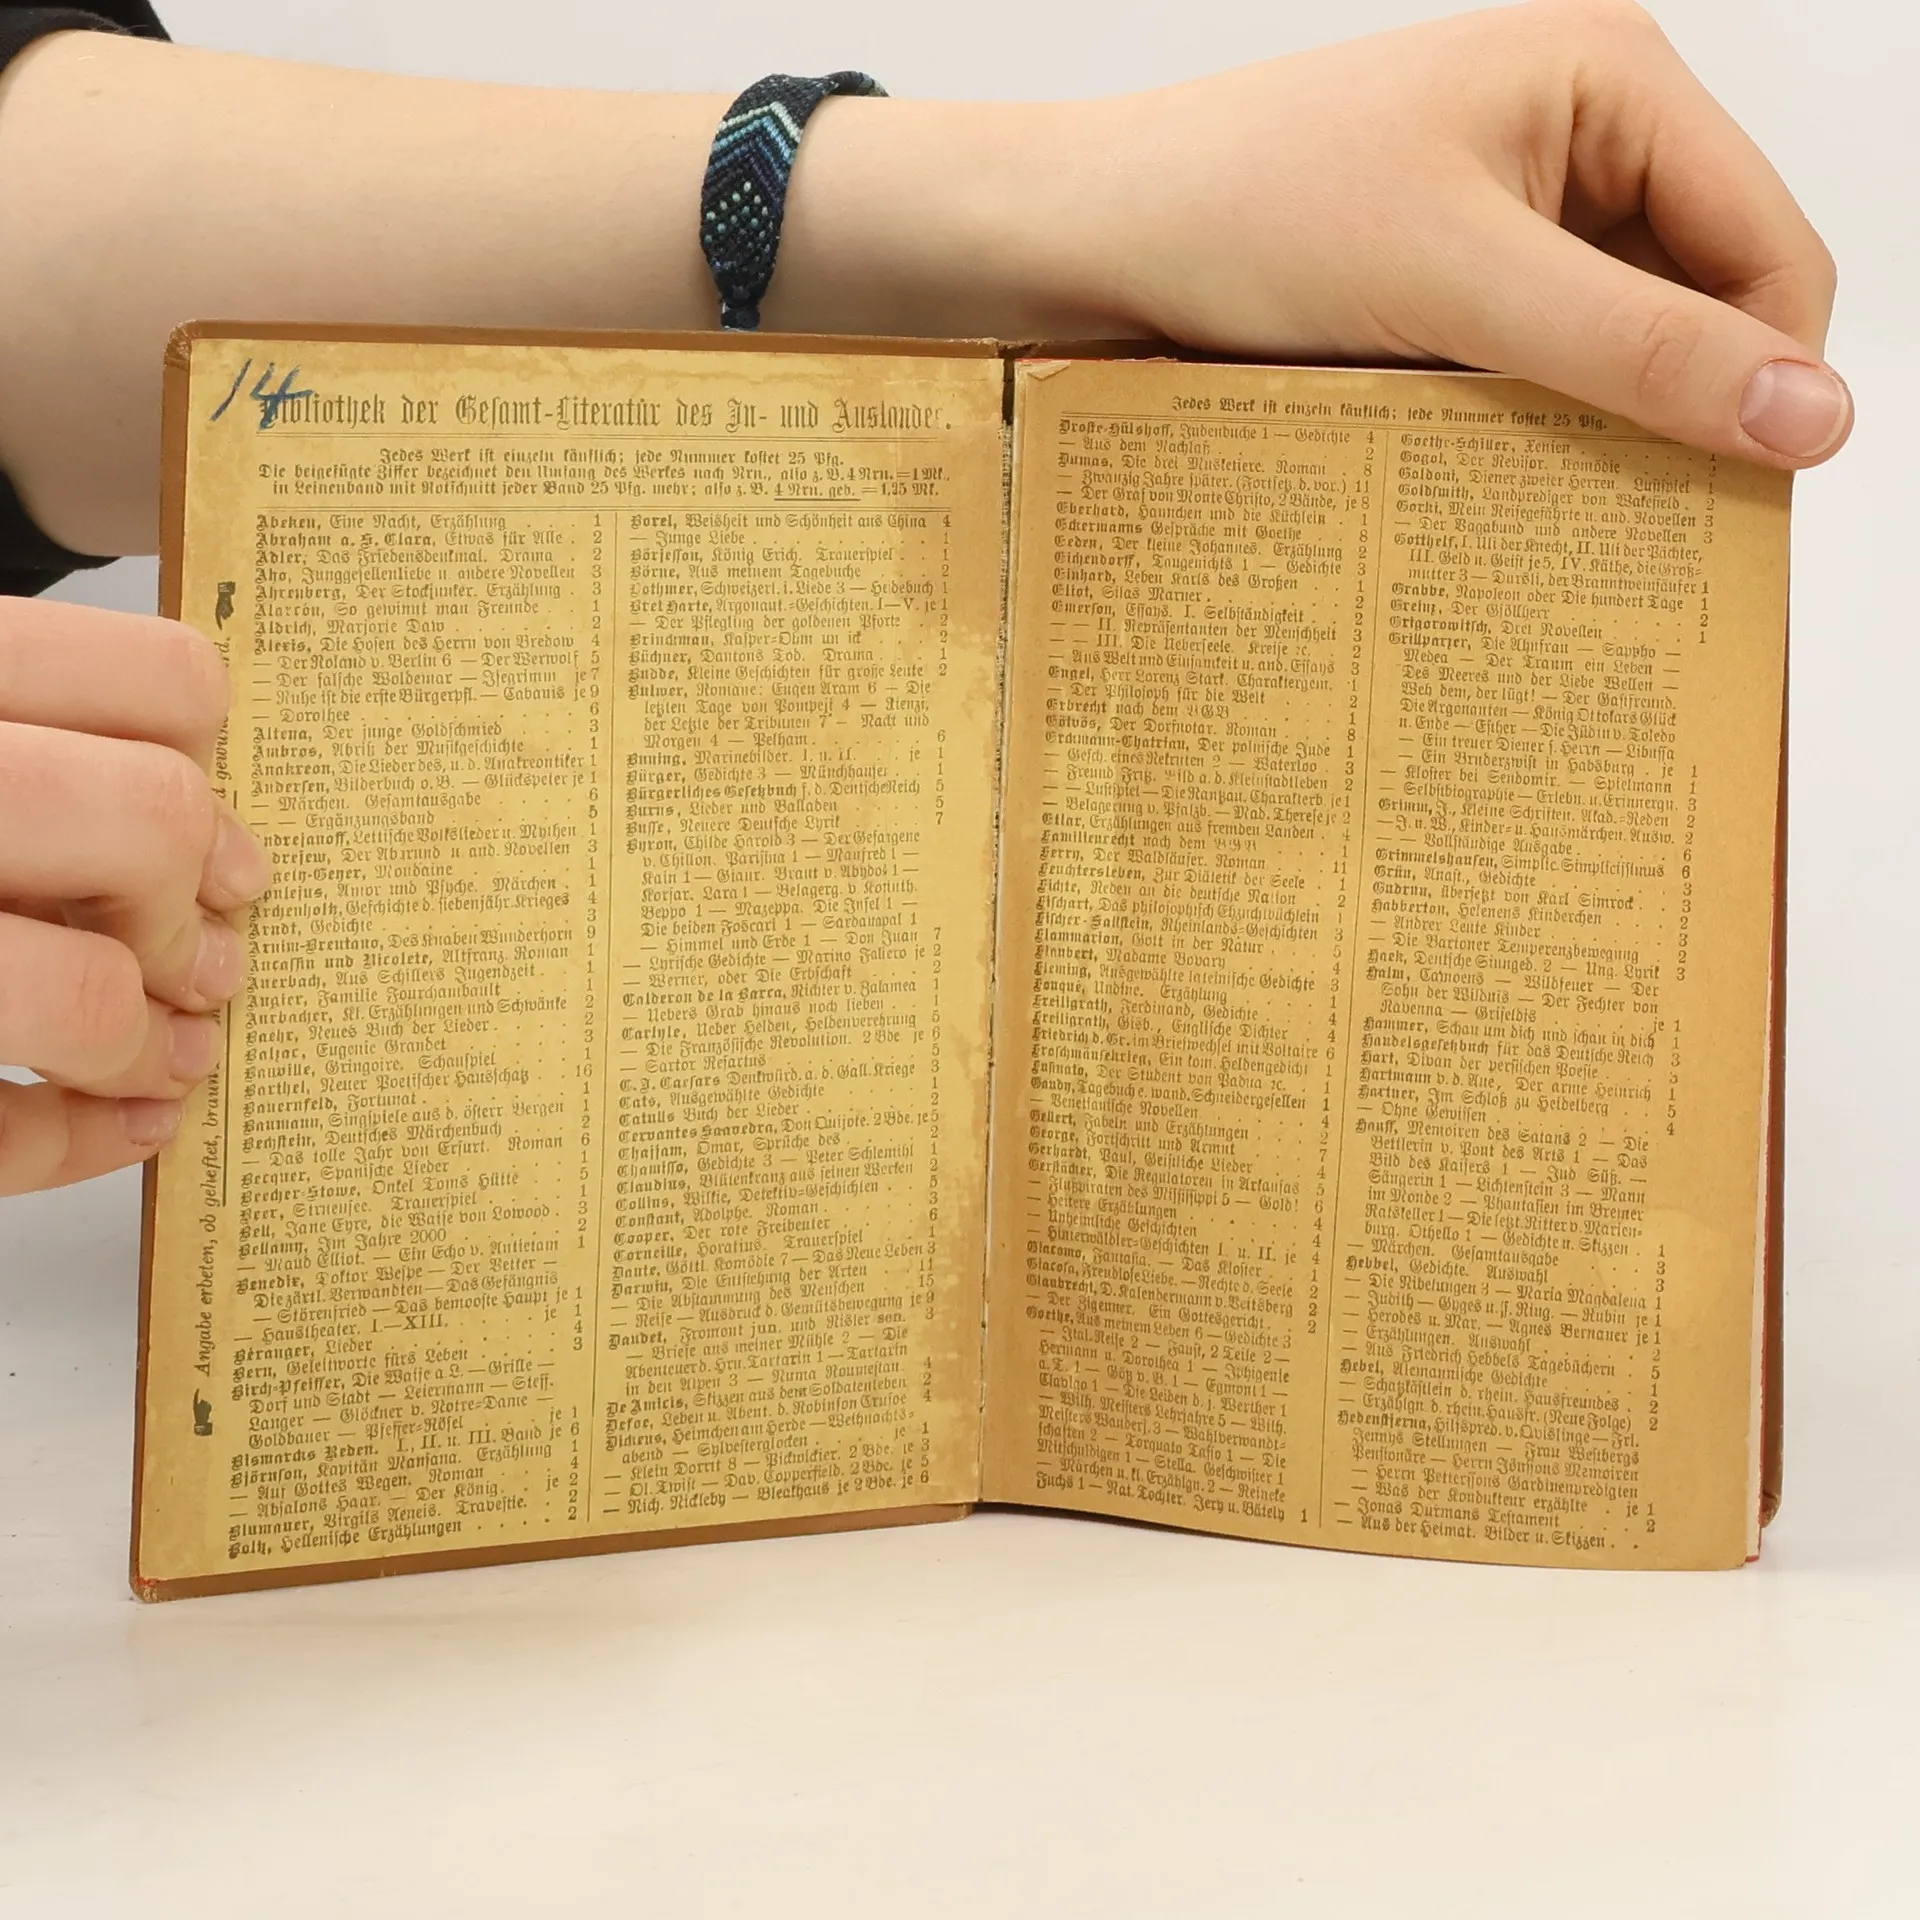 14
Bibliothek der Gesamt-Literatur des In- und Auslandes.
Jedes Werk ist einzeln käuflich; jede Nummer kostet 25 Pfg.
Die beigefügte Ziffer bezeichnet den Umfang des Werkes nach Nrn., also z. B. 4 Nrn. = 1 Mk.,
in Leinenband mit Rotschnitt jeder Band 25 Pfg. mehr; also z. B. 4 Nrn. geb. = 1.25 Mk.
Angabe erbeten, ob geheftet, braun
Abeken, Eine Nacht, Erzählung . . . 1
Abraham a. S. Clara, Etwas für Alle . 2
Adler, Das Friedensdenkmal. Drama . 2
Aho, Junggesellenliebe u. andere Novellen 3
Ahrenberg, Der Stockjunker. Erzählung . 3
Alarcón, So gewinnt man Freunde . 1
Aldrich, Marjorie Daw . . . 2
Alexis, Die Hosen des Herrn von Bredow 4
— Der Roland v. Berlin 6 — Der Werwolf 5
— Der falsche Woldemar — Isegrimm je 7
— Ruhe ist die erste Bürgerpfl. — Cabanis je 9
— Dorothee . . . 6
Altena, Der junge Goldschmied . . 3
Ambros, Abriß der Musikgeschichte . 1
Anakreon, Die Lieder des, u. d. Anakreontiker 1
Andersen, Bilderbuch o. B. — Glückspeter je 1
— Märchen. Gesamtausgabe . . 6
— — Ergänzungsband . . . 5
Andrejanoff, Lettische Volkslieder u. Mythen 1
drejew, Der Abgrund u. and. Novellen 3
gely-Geyer, Moudaine . . . 1
Apulejus, Amor und Psyche. Märchen . 1
Archenholtz, Geschichte d. siebenjähr. Krieges 4
Arndt, Gedichte . . . 3
Arnim-Brentano, Des Knaben Wunderhorn 9
Aucassin und Nicolete, Altfranz. Roman 1
Auerbach, Aus Schillers Jugendzeit . 1
Augier, Familie Fourchambault . . 1
Aurbacher, Kl. Erzählungen und Schwänke 2
Baehr, Neues Buch der Lieder . . . 2
Balzac, Eugenie Grandet . . . 3
Banville, Gringoire. Schauspiel . . 1
Barthel, Neuer Poetischer Hausschatz . . 16
Bauernfeld, Fortunat . . . 1
Baumann, Singspiele aus d. österr. Bergen 1
Bechstein, Deutsches Märchenbuch . . 2
— Das tolle Jahr von Erfurt. Roman 6
Becquer, Spanische Lieder . . . 1
Beecher-Stowe, Onkel Toms Hütte . . 5
Beer, Struensee. Trauerspiel . . . 1
Bell, Jane Eyre, die Waise von Lowood . 3
Bellamy, Im Jahre 2000 . . . 2
— Maud Elliot. — Ein Echo v. Antietam 1
Benedix, Doktor Wespe — Der Vetter —
Die zärtl. Verwandten — Das Gefängnis
— Störenfried — Das bemooste Haupt je 1
— Haustheater. I.—XIII. . . je 1
Béranger, Lieder . . . 4
Bern, Geleitworte fürs Leben . . . 3
Birch-Pfeiffer, Die Waise a. L. — Grille —
Dorf und Stadt — Leiermann — Steff.
Langer — Glöckner v. Notre-Dame —
Goldbauer — Pfeffer-Rösel . . je 1
Bismarcks Reden. I., II. u. III. Band je 6
Björnson, Kapitän Mansana. Erzählung 1
— Auf Gottes Wegen. Roman . . 4
— Absalons Haar. — Der König. . je 2
Blumauer, Virgils Aeneis. Travestie. . 2
Boltz, Hellenische Erzählungen . . . 2
Borel, Weisheit und Schönheit aus China 4
— Junge Liebe . . . 1
Börjesson, König Erich. Trauerspiel . . 1
Börne, Aus meinem Tagebuche . . . 2
Bothmer, Schweizerl. i. Liede 3 — Heidebuch 1
Bret Harte, Argonaut.-Geschichten. I—V. je 1
— Der Pflegling der goldenen Pforte . 2
Brinckman, Kasper-Ohm un ick . . 2
Büchner, Dantons Tod. Drama . . . 1
Budde, Kleine Geschichten für große Leute 2
Bulwer, Romane: Eugen Aram 6 — Die
letzten Tage von Pompeji 4 — Rienzi,
der Letzte der Tribunen 7 — Nacht und
Morgen 4 — Pelham . . . 6
Buning, Marinebilder. I. u. II. . je 1
Bürger, Gedichte 3 — Münchhauser . 1
Bürgerliches Gesetzbuch f. d. Deutsche Reich 5
Burns, Lieder und Balladen . . . 5
Busse, Neuere Deutsche Lyrik . . . 7
Byron, Childe Harold 3 — Der Gefangene
v. Chillon. Parisina 1 — Manfred 1 —
Kain 1 — Giaur. Braut v. Abydos 1 —
Korsar. Lara 1 — Belagerg. v. Korinth.
Beppo 1 — Mazeppa. Die Insel 1 —
Die beiden Foscari 1 — Sardanapal 1
— Himmel und Erde 1 — Don Juan 7
— Lyrische Gedichte — Marino Faliero je 2
— Werner, oder Die Erbschaft . . 2
Calderon de la Barca, Richter v. Zalamea 1
— Uebers Grab hinaus noch lieben . . 1
Carlyle, Ueber Helden, Heldenverehrung 5
— Die Französische Revolution. 2 Bde. je 6
— Sartor Resartus . . . 5
C. J. Caesars Denkwürd. a. d. Gall. Kriege 3
Cats, Ausgewählte Gedichte . . . 1
Catulls Buch der Lieder . . . 2
Cervantes Saavedra, Don Quijote. 2 Bde. je 5
Chaijam, Omar, Sprüche des . . . 2
Chamisso, Gedichte 3 — Peter Schlemihl 1
Claudius, Blütenkranz aus seinen Werken 2
Collins, Wilkie, Detektiv-Geschichten . . 5
Constant, Adolphe. Roman . . . 3
Cooper, Der rote Freibeuter . . . 6
Corneille, Horatius. Trauerspiel . . 1
Dante, Göttl. Komödie 7 — Das Neue Leben 3
Darwin, Die Entstehung der Arten . . 11
— Die Abstammung des Menschen . 15
— Reise — Ausdruck d. Gemütsbewegung je 9
Daudet, Fromont jun. und Risler sen. 3
— Briefe aus meiner Mühle 2 — Die
Abenteuer d. Hrn. Tartarin 1 — Tartarin
in den Alpen 3 — Numa Roumestan. 4
De Amicis, Skizzen aus dem Soldatenleben 2
Defoe, Leben u. Abent. d. Robinson Crusoe 4
Dickens, Heimchen am Herde — Weihnachts-
abend — Sylvesterglocken . . . je 1
— Klein Dorrit 8 — Pickwickier. 2 Bde. je 3
— Ol. Twist — Dav. Copperfield. 2 Bde. je 5
— Nich. Nickleby — Bleakhaus je 2 Bde. je 6
Jedes Werk ist einzeln käuflich; jede Nummer kostet 25 Pfg.
Droste-Hülshoff, Judenbuche 1 — Gedichte 4
— Aus dem Nachlaß . . . 2
Dumas, Die drei Musketiere. Roman . 8
— Zwanzig Jahre später. (Fortsetz. d. vor.) 11
— Der Graf von Monte Christo, 2 Bände, je 8
Eberhard, Hannchen und die Küchlein . 1
Eckermanns Gespräche mit Goethe . . 8
Eeden, Der kleine Johannes. Erzählung 2
Eichendorff, Taugenichts 1 — Gedichte 3
Einhard, Leben Karls des Großen . 1
Eliot, Silas Marner . . . 2
Emerson, Essays. I. Selbständigkeit . . 2
— — II. Repräsentanten der Menschheit 3
— — III. Die Ueberseele. Kreise 2c. . 2
— Aus Welt und Einsamkeit u. and. Essays 3
Engel, Herr Lorenz Stark. Charaktergem. 1
— Der Philosoph für die Welt . . 2
Erbrecht nach dem BGB . . . 1
Eötvös, Der Dorfnotar. Roman . . 8
Erckmann-Chatrian, Der polnische Jude 1
— Gesch. eines Rekruten 2 — Waterloo . 3
— Freund Fritz. Bild a. d. Kleinstadtleben 2
— — Lustspiel — Die Rantzau. Charakterb. je 1
— Belagerung v. Pfalzb. — Mad. Therese je 2
Etlar, Erzählungen aus fremden Landen . 4
Familienrecht nach dem BGB . . . 1
Ferry, Der Waldläufer. Roman . . 11
Feuchtersleben, Zur Diätetik der Seele . 1
Fichte, Reden an die deutsche Nation . 2
Fischart, Das philosophisch Ehzuchtbüchlein 1
Fischer-Sallstein, Rheinlands-Geschichten 3
Flammarion, Gott in der Natur . . 5
Flaubert, Madame Bovary . . . 4
Fleming, Ausgewählte lateinische Gedichte 3
Fouqué, Undine. Erzählung . . . 1
Freiligrath, Ferdinand, Gedichte . . 4
Freiligrath, Gisb., Englische Dichter . 4
Friedrich d. Gr. im Briefwechsel mit Voltaire 6
Froschmäusekrieg, Ein kom. Heldengedicht 1
Fusinato, Der Student von Padua 2c. . 1
Gaudy, Tagebuch e. wand. Schneidergesellen 1
— Venetianische Novellen . . . 4
Gellert, Fabeln und Erzählungen . . 2
George, Fortschritt und Armut . . 7
Gerhardt, Paul, Geistliche Lieder . . 4
Gerstäcker, Die Regulatoren in Arkansas 5
— Flußpiraten des Mississippi 5 — Gold! 6
— Heitere Erzählungen . . . 4
— Unheimliche Geschichten . . . 4
— Hinterwäldler-Geschichten I. u. II. je 4
Giacomo, Fantasia. — Das Kloster . . 1
Giacosa, Freudlose Liebe. — Rechte d. Seele 2
Glaubrecht, D. Kalendermann v. Veitsberg 2
— Der Zigeuner. Ein Gottesgericht. . 2
Goethe, Aus meinem Leben 6 — Gedichte 3
— Ital. Reise 2 — Faust, 2 Teile 2 —
Hermann u. Dorothea 1 — Iphigenie
a. T. 1 — Götz v. B. 1 — Egmont 1 —
Clavigo 1 — Die Leiden d. j. Werther 1
— Wilh. Meisters Lehrjahre 5 — Wilh.
Meisters Wanderj. 3 — Wahlverwandt-
schaften 2 — Torquato Tasso 1 — Die
Mitschuldigen 1 — Stella. Geschwister 1
— Märchen u. kl. Erzählgn. 2 — Reineke
Fuchs 1 — Nat. Tochter. Jery u. Bätely 1
Goethe-Schiller, Xenien . . . 1
Gogol, Der Revisor. Komödie . . 2
Goldoni, Diener zweier Herren. Lustspiel 1
Goldsmith, Landprediger von Wakefield . 2
Gorki, Mein Reisegefährte u. and. Novellen 3
— Der Vagabund und andere Novellen 3
Gotthelf, I. Uli der Knecht, II. Uli der Pächter,
III. Geld u. Geist je 5, IV. Käthe, die Groß-
mutter 3 — Dursli, der Branntweinsäufer 1
Grabbe, Napoleon oder Die hundert Tage 1
Greinz, Der Gjöllherr . . . 2
Grigorowitsch, Drei Novellen . . . 1
Grillparzer, Die Ahnfrau — Sappho —
Medea — Der Traum ein Leben —
Des Meeres und der Liebe Wellen —
Weh dem, der lügt! — Der Gastfreund.
Die Argonauten — König Ottokars Glück
u. Ende — Esther — Die Jüdin v. Toledo
— Ein treuer Diener s. Herrn — Libussa
— Ein Bruderzwist in Habsburg . je 1
— Kloster bei Sendomir. — Spielmann 1
— Selbstbiographie — Erlebn. u. Erinnergn. 3
Grimm, J., Kleine Schriften. Akad.-Reden 2
— J. u. W., Kinder- u. Hausmärchen. Ausw. 2
— — Vollständige Ausgabe . . . 6
Grimmelshausen, Simplic. Simplicissimus 6
Grün, Anast., Gedichte . . . 3
Gudrun, übersetzt von Karl Simrock . . 3
Habberton, Helenens Kinderchen . . 2
— Andrer Leute Kinder . . . 3
— Die Bartoner Temperenzbewegung . 2
Haek, Deutsche Sinnged. 2 — Ung. Lyrik 3
Halm, Camoens — Wildfeuer — Der
Sohn der Wildnis — Der Fechter von
Ravenna — Griseldis . . . je 1
Hammer, Schau um dich und schau in dich 1
Handelsgesetzbuch für das Deutsche Reich 3
Hart, Divan der persischen Poesie . . 3
Hartmann v. d. Aue, Der arme Heinrich 1
Hartner, Im Schloß zu Heidelberg . . 5
— Ohne Gewissen . . . 4
Hauff, Memoiren des Satans 2 — Die
Bettlerin v. Pont des Arts 1 — Das
Bild des Kaisers 1 — Jud Süß. —
Sängerin 1 — Lichtenstein 3 — Mann
im Monde 2 — Phantasien im Bremer
Ratskeller 1 — Die letzt. Ritter v. Marien-
burg. Othello 1 — Gedichte u. Skizzen . 1
— Märchen. Gesamtausgabe . . 3
Hebbel, Gedichte. Auswahl . . . 3
— Die Nibelungen 3 — Maria Magdalena 1
— Judith — Gyges u. s. Ring. — Rubin je 1
— Herodes u. Mar. — Agnes Bernauer je 1
— Erzählungen. Auswahl . . . 2
— Aus Friedrich Hebbels Tagebüchern . 5
Hebel, Alemannische Gedichte . . . 1
— Schatzkästlein d. rhein. Hausfreundes . 2
— Erzählgn. d. rhein. Hausfr. (Neue Folge) 2
Hedenstjerna, Hilfspred. v. Qvislinge — Frl.
Jennys Stellungen — Frau Westbergs
Pensionäre — Herrn Jönssons Memoiren
— Herrn Petterssons Gardinenpredigten
— Was der Kondukteur erzählte . je 1
— Jonas Durmans Testament . . . 2
— Aus der Heimat. Bilder u. Skizzen . .